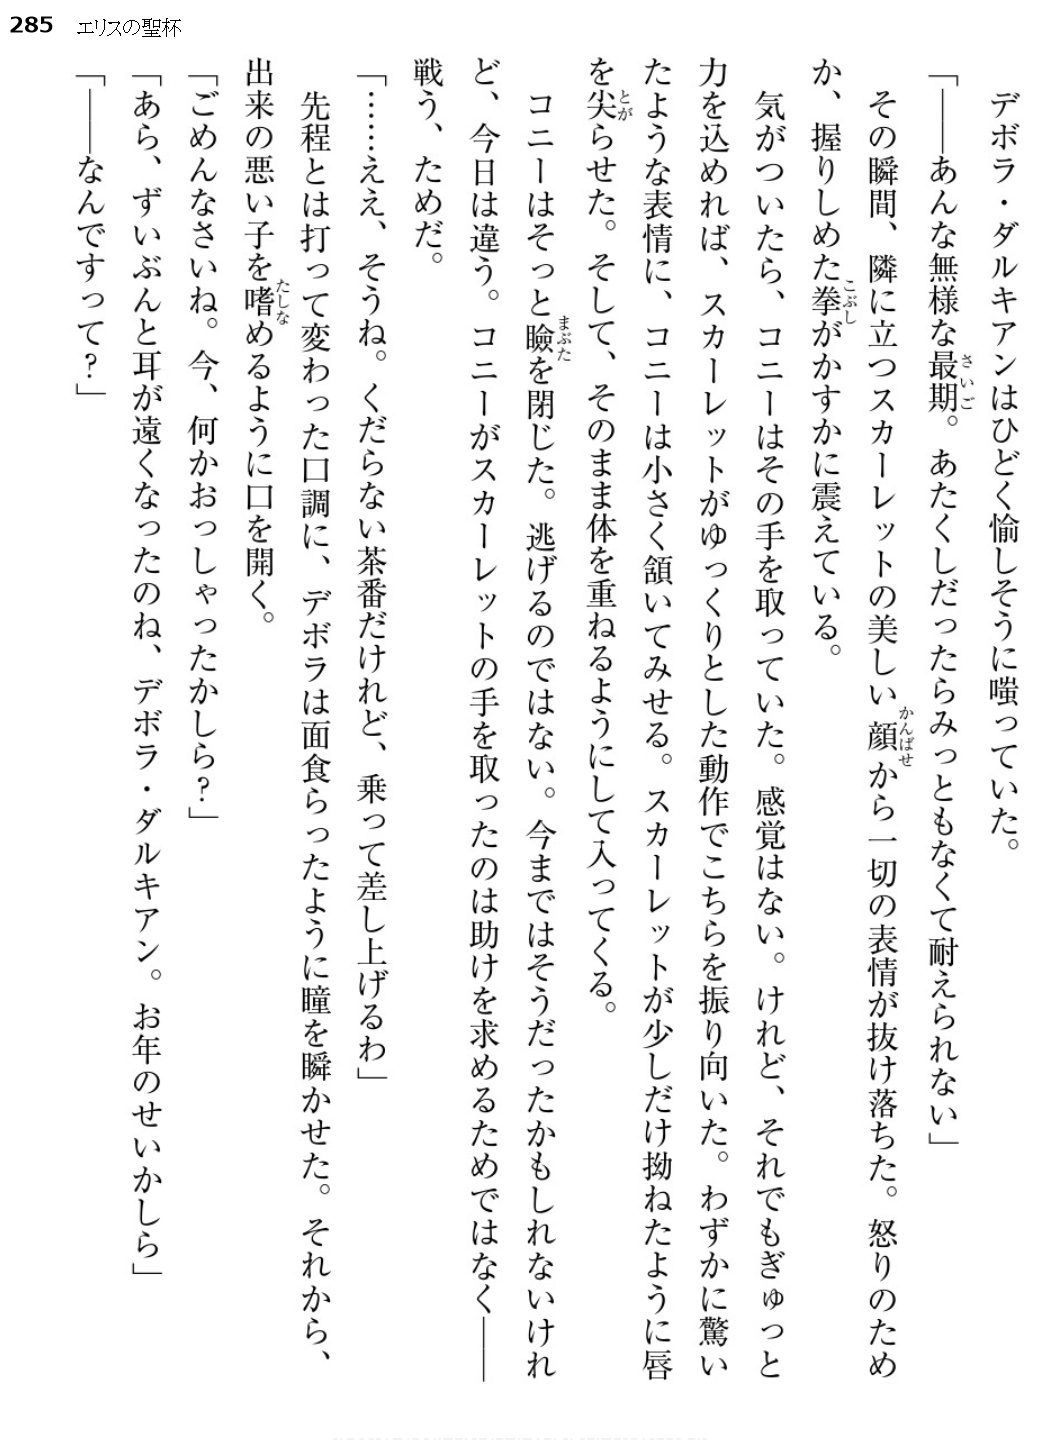 285 エリスの聖杯
デボラ・ダルキアンはひどく愉しそうに嗤っていた。
「――あんな無様な最期。あたくしだったらみっともなくて耐えられない」
その瞬間、隣に立つスカーレットの美しい顔から一切の表情が抜け落ちた。怒りのため
か、握りしめた拳がかすかに震えている。
気がついたら、コニーはその手を取っていた。感覚はない。けれど、それでもぎゅっと
力を込めれば、スカーレットがゆっくりとした動作でこちらを振り向いた。わずかに驚い
たような表情に、コニーは小さく頷いてみせる。スカーレットが少しだけ拗ねたように唇
を尖らせた。そして、そのまま体を重ねるようにして入ってくる。
コニーはそっと瞼を閉じた。逃げるのではない。今まではそうだったかもしれないけれ
ど、今日は違う。コニーがスカーレットの手を取ったのは助けを求めるためではなく――
戦う、ためだ。
「……ええ、そうね。くだらない茶番だけれど、乗って差し上げるわ」
先程とは打って変わった口調に、デボラは面食らったように瞳を瞬かせた。それから、
出来の悪い子を嗜めるように口を開く。
「ごめんなさいね。今、何かおっしゃったかしら?」
「あら、ずいぶんと耳が遠くなったのね、デボラ・ダルキアン。お年のせいかしら」
「――なんですって?」